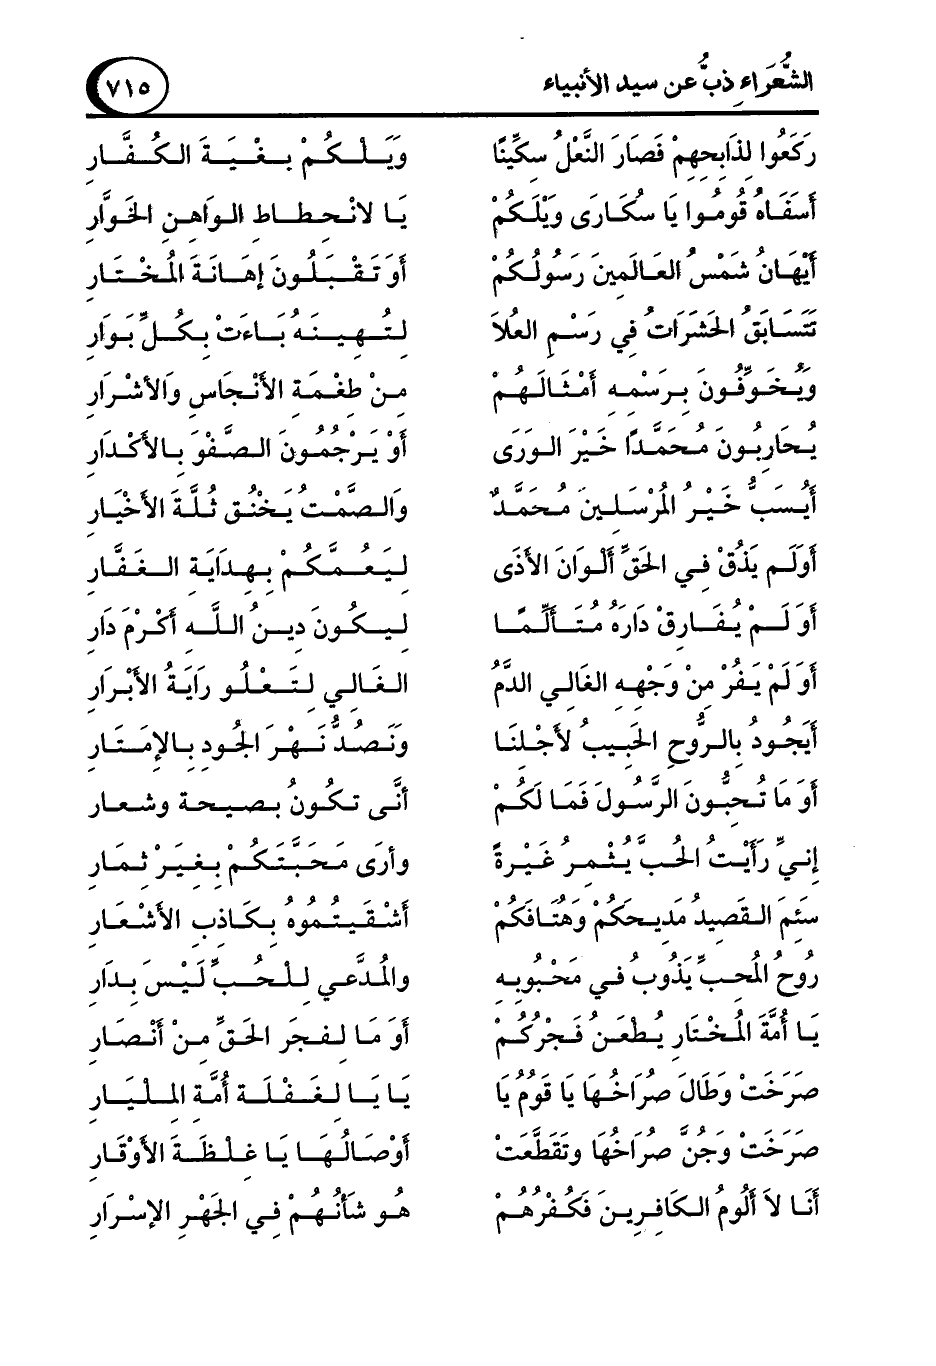 الشُّعَرَاءِ ذبٌّ عن سيد الأنبياء ٧١٥
رَكَعُوا لذَابحِهِمْ فَصَارَ النَّعْلُ سكِّينًا وَيْـلَـكُـمْ بِـغْـيَـةَ الـكُـفَّـارِ
أَسَفَاهُ قُومُوا يَا سُكَارَى وَيْلَكُمْ يَـا لانْـحِـطَـاطِ الـواهِـنِ الخَوَّارِ
أَيُهَانُ شَمْسُ العَالَمِينَ رَسُولُكُمْ أَوَ تَـقْـبَـلُـونَ إِهَـانَـةَ المُـخْـتَـارِ
تَتَسَابَقُ الحَشَرَاتُ فِي رَسْمِ العُلاَ لـتُـهِـيـنَـهُ بَـاءَتْ بِـكُـلِّ بَـوَارِ
وَيُخَوِّفُونَ بِـرَسْمِهِ أَمْثَـالَـهُـمْ مِـنْ طُغْمَةِ الأَنْجَاسِ وَالأَشْرَارِ
يُـحَارِبُونَ مُـحَمَّـدًا خَيْرَ الـوَرَى أَوَ يَـرْجُمُونَ الـصَّفْوَ بِـالأَكْـدَارِ
أَيُسَبُّ خَيْرُ المُرْسَلِينَ مُحَمَّدٌ وَالصَّمْتُ يَخْنُقُ ثُلَّةَ الأَخْيَارِ
أَوَلَـم يَذُقْ فِـي الحَقِّ أَلْـوَانَ الأَذَى لـيَـعُـمَّـكُـمْ بِـهِـدَايَـةِ الـغَـفَّـارِ
أَوَ لَـمْ يُـفَـارِقْ دَارَهُ مُـتَـأَلِّـمًـا لـيَـكُـونَ دِيـنُ الـلَّـهِ أَكْـرَمَ دَارِ
أَوَ لَمْ يَـفُرْ مِنْ وَجْهِهِ الغَالِي الدَّمُ الغَالي لـتَـعْـلُـو رَايَـةُ الأَبْـرَارِ
أَيَـجُـودُ بِالـرُّوحِ الحَبِيبُ لأَجْلِـنَـا وَنَـصُـدُّ نَـهْـرَ الجُودِ بِـالإِمْـتَـارِ
أَوَ مَا تُـحِبُّونَ الرَّسُـولَ فَمَا لَكُـمْ أَنَّـى تَـكُـونُ بِـصَـيْـحَـةٍ وَشِعَـارِ
إِنـيِّ رَأَيْـتُ الحُـبَّ يُـثْـمِـرُ غَيْرَةً وَأَرَى مَـحَـبَّـتَـكُـمْ بِـغَـيْـرِ ثِـمَـارِ
سَئِـمَ الـقَصِيدُ مَدِيـحَكُمْ وَهُتَافَكُمْ أَشْـقَـيْـتُمُوهُ بِـكَـاذِبِ الأَشْـعَـارِ
رُوحُ المُحِبِّ يَذُوبُ فِـي مَـحْبُوبِـهِ وَالمُـدَّعِـي لـلْـحُـبِّ لَـيْـسَ بِـدَارِ
يَـا أُمَّـةَ المُـخْـتَـارِ يُطْعَنُ فَـجْرُكُـمْ أَوَ مَـا لِـفَـجْرِ الحَقِّ مِـنْ أَنْـصَـارِ
صَرَخَتْ وَطَالَ صُرَاخُـهَا يَا قَوْمُ يَا يَـا يَـا لـغَـفْـلَـةِ أُمَّـةِ المـلْـيَـارِ
صَرَخَتْ وَجُنَّ صُرَاخُهَا وَتَقَطَّعَتْ أَوْصَالُـهَـا يَـا غـلْـظَـةَ الأَوْقَـارِ
أَنَـا لاَ أَلُومُ الـكَافِرِيـنَ فَكُفْرُهُـمْ هُـوَ شَأْنُهُـمْ فِـي الجَهْرِ الإِسْرَارِ